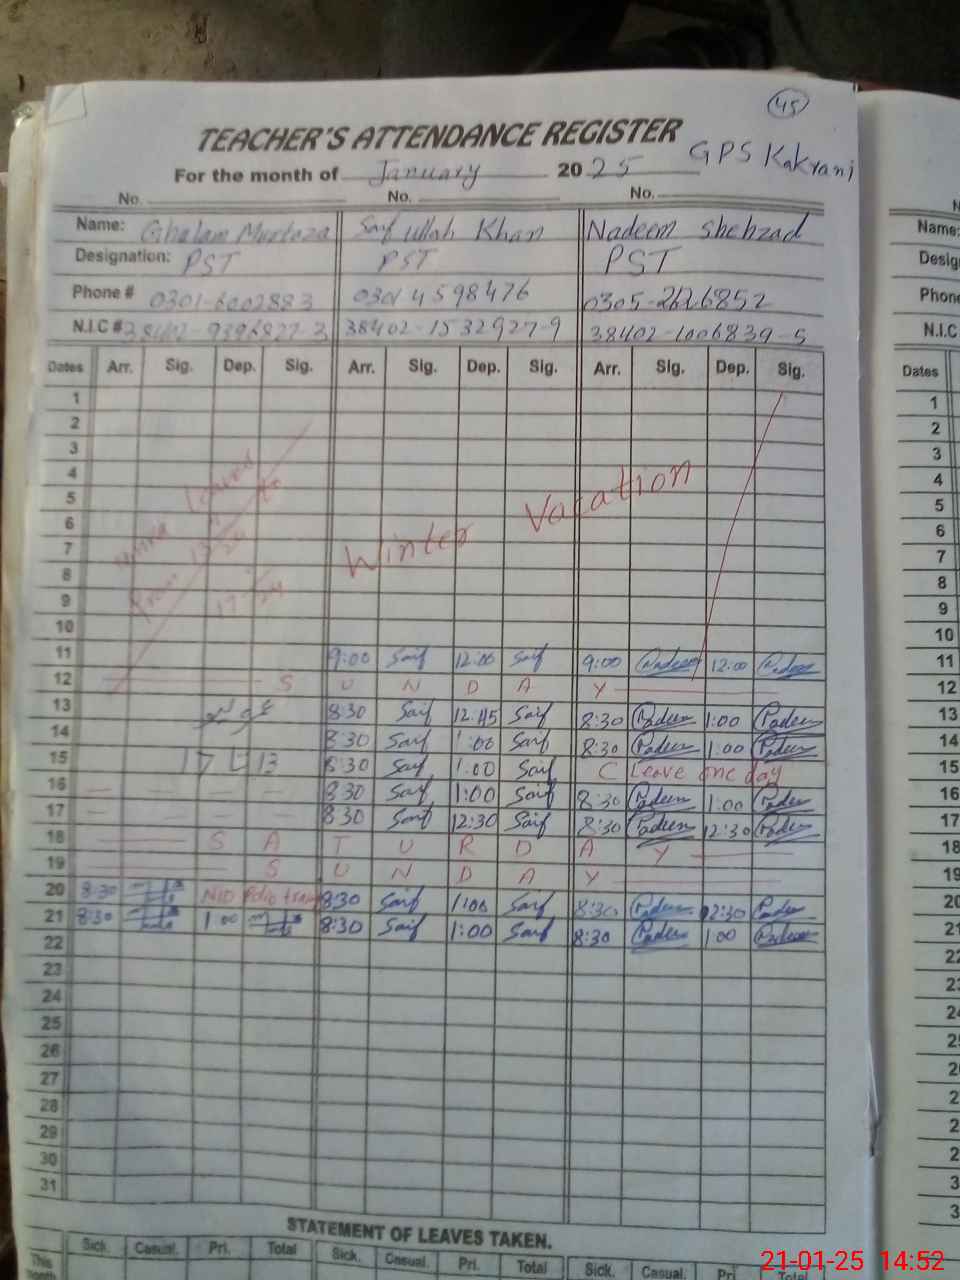 45
TEACHER'S ATTENDANCE REGISTER
GPS Kakrani
For the month of January 2025
No. No. No.
Name: Ghulam Murtaza Saif ullah Khan Nadeem Shehzad
Designation: PST PST PST
Phone # 0301-6002883 0301 4598476 0305-2126852
N.I.C # 38402-9396827-3 38402-1532927-9 38402-1006839-5
Dates Arr. Sig. Dep. Sig. Arr. Sig. Dep. Sig. Arr. Sig. Dep. Sig.
1
2
3
4
5
6
7
8
9
10
Leave
from 13
17
Winter Vacation
11 9:00 Saif 12:00 Saif 9:00 Nadeem 12:00 Nadeem
12 S U N D A Y
13 8:30 Saif 12:45 Saif 8:30 Nadeem 1:00 Nadeem
14 8:30 Saif 1:00 Saif 8:30 Nadeem 1:00 Nadeem
15 17 13 8:30 Saif 1:00 Saif C Leave one day
16 8:30 Saif 1:00 Saif 8:30 Nadeem 1:00 Nadeem
17 8:30 Saif 12:30 Saif 8:30 Nadeem 12:30 Nadeem
18 S A T U R D A Y
19 S U N D A Y
20 8:30 NID Polio 8:30 Saif 1:00 Saif 8:30 Nadeem 12:30 Nadeem
21 8:30 1:00 8:30 Saif 1:00 Saif 8:30 Nadeem 1:00 Nadeem
22
23
24
25
26
27
28
29
30
31
STATEMENT OF LEAVES TAKEN.
This month Sick. Casual. Pri. Total Sick. Casual. Pri. Total Sick. Casual. Pri. Total
Name:
Phone
N.I.C
Dates
1
2
3
4
5
6
7
8
9
10
11
12
13
14
15
16
17
18
19
21-01-25 14:52